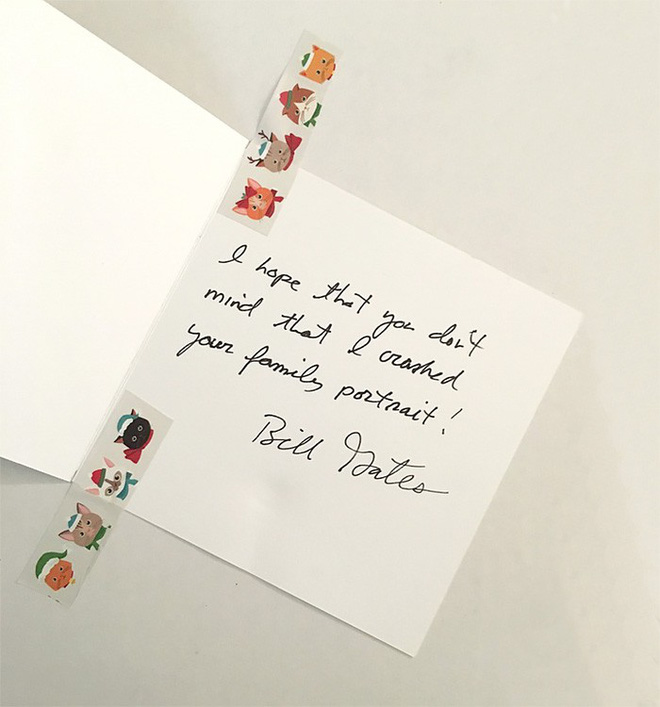 I hope that you don't
mind that I crashed
your family portrait!
Bill Gates